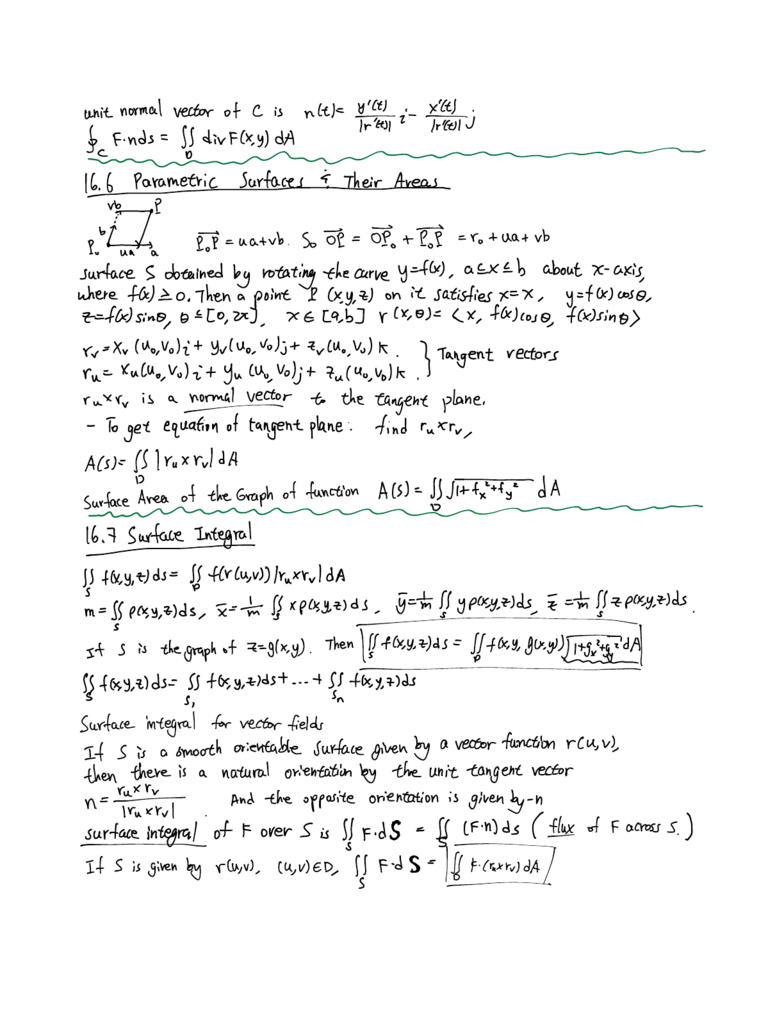 unit normal vector of C is n(t)= y'(t)/|r'(t)| i - x'(t)/|r'(t)| j
∮_C F·nds = ∬_D div F(x,y) dA
16.6 Parametric Surfaces & Their Areas
vb P
b P₀P = ua+vb. So OP = OP₀ + P₀P = r₀ + ua + vb
P₀ ua a
surface S obtained by rotating the curve y=f(x), a≤x≤b about x-axis,
where f(x)≥0. Then a point P (x,y,z) on it satisfies x=x, y=f(x)cosθ,
z=f(x)sinθ, θ∈[0,2π], x∈[a,b] r(x,θ)=<x, f(x)cosθ, f(x)sinθ>
r_v = x_v(u₀,v₀)i + y_v(u₀,v₀)j + z_v(u₀,v₀)k. } Tangent vectors
r_u = x_u(u₀,v₀)i + y_u(u₀,v₀)j + z_u(u₀,v₀)k.
r_u×r_v is a normal vector to the tangent plane.
- To get equation of tangent plane: find r_u×r_v,
A(s)=∬_D |r_u×r_v| dA
Surface Area of the Graph of function A(s)=∬_D √(1+f_x²+f_y²) dA
16.7 Surface Integral
∬_S f(x,y,z)ds = ∬_D f(r(u,v))|r_u×r_v|dA
m=∬_S ρ(x,y,z)ds, x̄=1/m ∬_S xρ(x,y,z)ds, ȳ=1/m ∬_S yρ(x,y,z)ds, z̄=1/m ∬_S zρ(x,y,z)ds.
If S is the graph of z=g(x,y). Then ∬_S f(x,y,z)ds = ∬_D f(x,y,g(x,y))√(1+g_x²+g_y²)dA
∬_S f(x,y,z)ds = ∬_S₁ f(x,y,z)ds+...+∬_Sₙ f(x,y,z)ds
Surface integral for vector fields
If S is a smooth orientable surface given by a vector function r(u,v),
then there is a natural orientation by the unit tangent vector
n = r_u×r_v/|r_u×r_v|. And the opposite orientation is given by -n
surface integral of F over S is ∬_S F·dS = ∬_S (F·n)ds (flux of F across S.)
If S is given by r(u,v), (u,v)∈D, ∬_S F·dS = ∬_D F·(r_u×r_v)dA